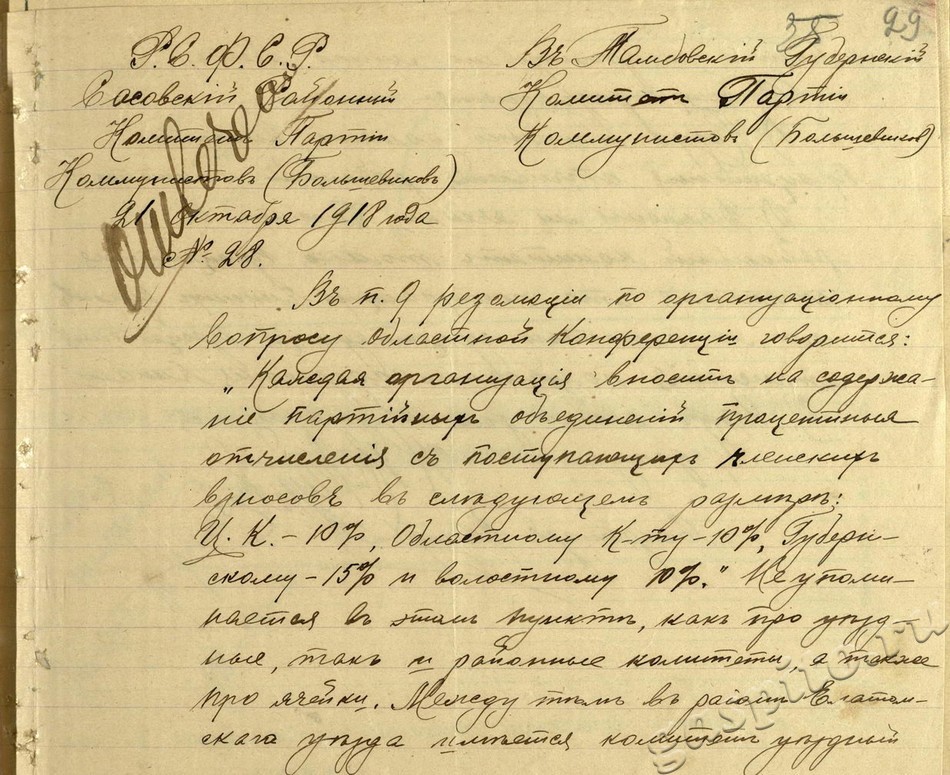 29
Р. С. Ф. С. Р.
Сасовскій Районный
Комитетъ Партіи
Коммунистовъ (Большевиковъ)
21 Октября 1918 года
№ 28.
Въ Тамбовскій Губернскій
Комитетъ Партіи
Коммунистовъ (Большевиков)
Въ п. 9 резолюціи по организаціонному
вопросу областной Конференціи говорится:
„Каждая организація вноситъ на содержа-
ніе партійныхъ объединеній процентныя
отчисленія съ поступающихъ членскихъ
взносовъ въ слѣдующемъ размѣрѣ:
Ц. К. – 10%, Областному К-ту – 10%, Губерн-
скому – 15% и волостному 10%." Не упоми-
нается въ этомъ пунктѣ, какъ про уѣзд-
ные, такъ и районные комитеты, а также
про ячейки. Между тѣмъ въ районѣ Елатом-
скаго уѣзда имѣется комитетъ уѣздный
gaspito.ru